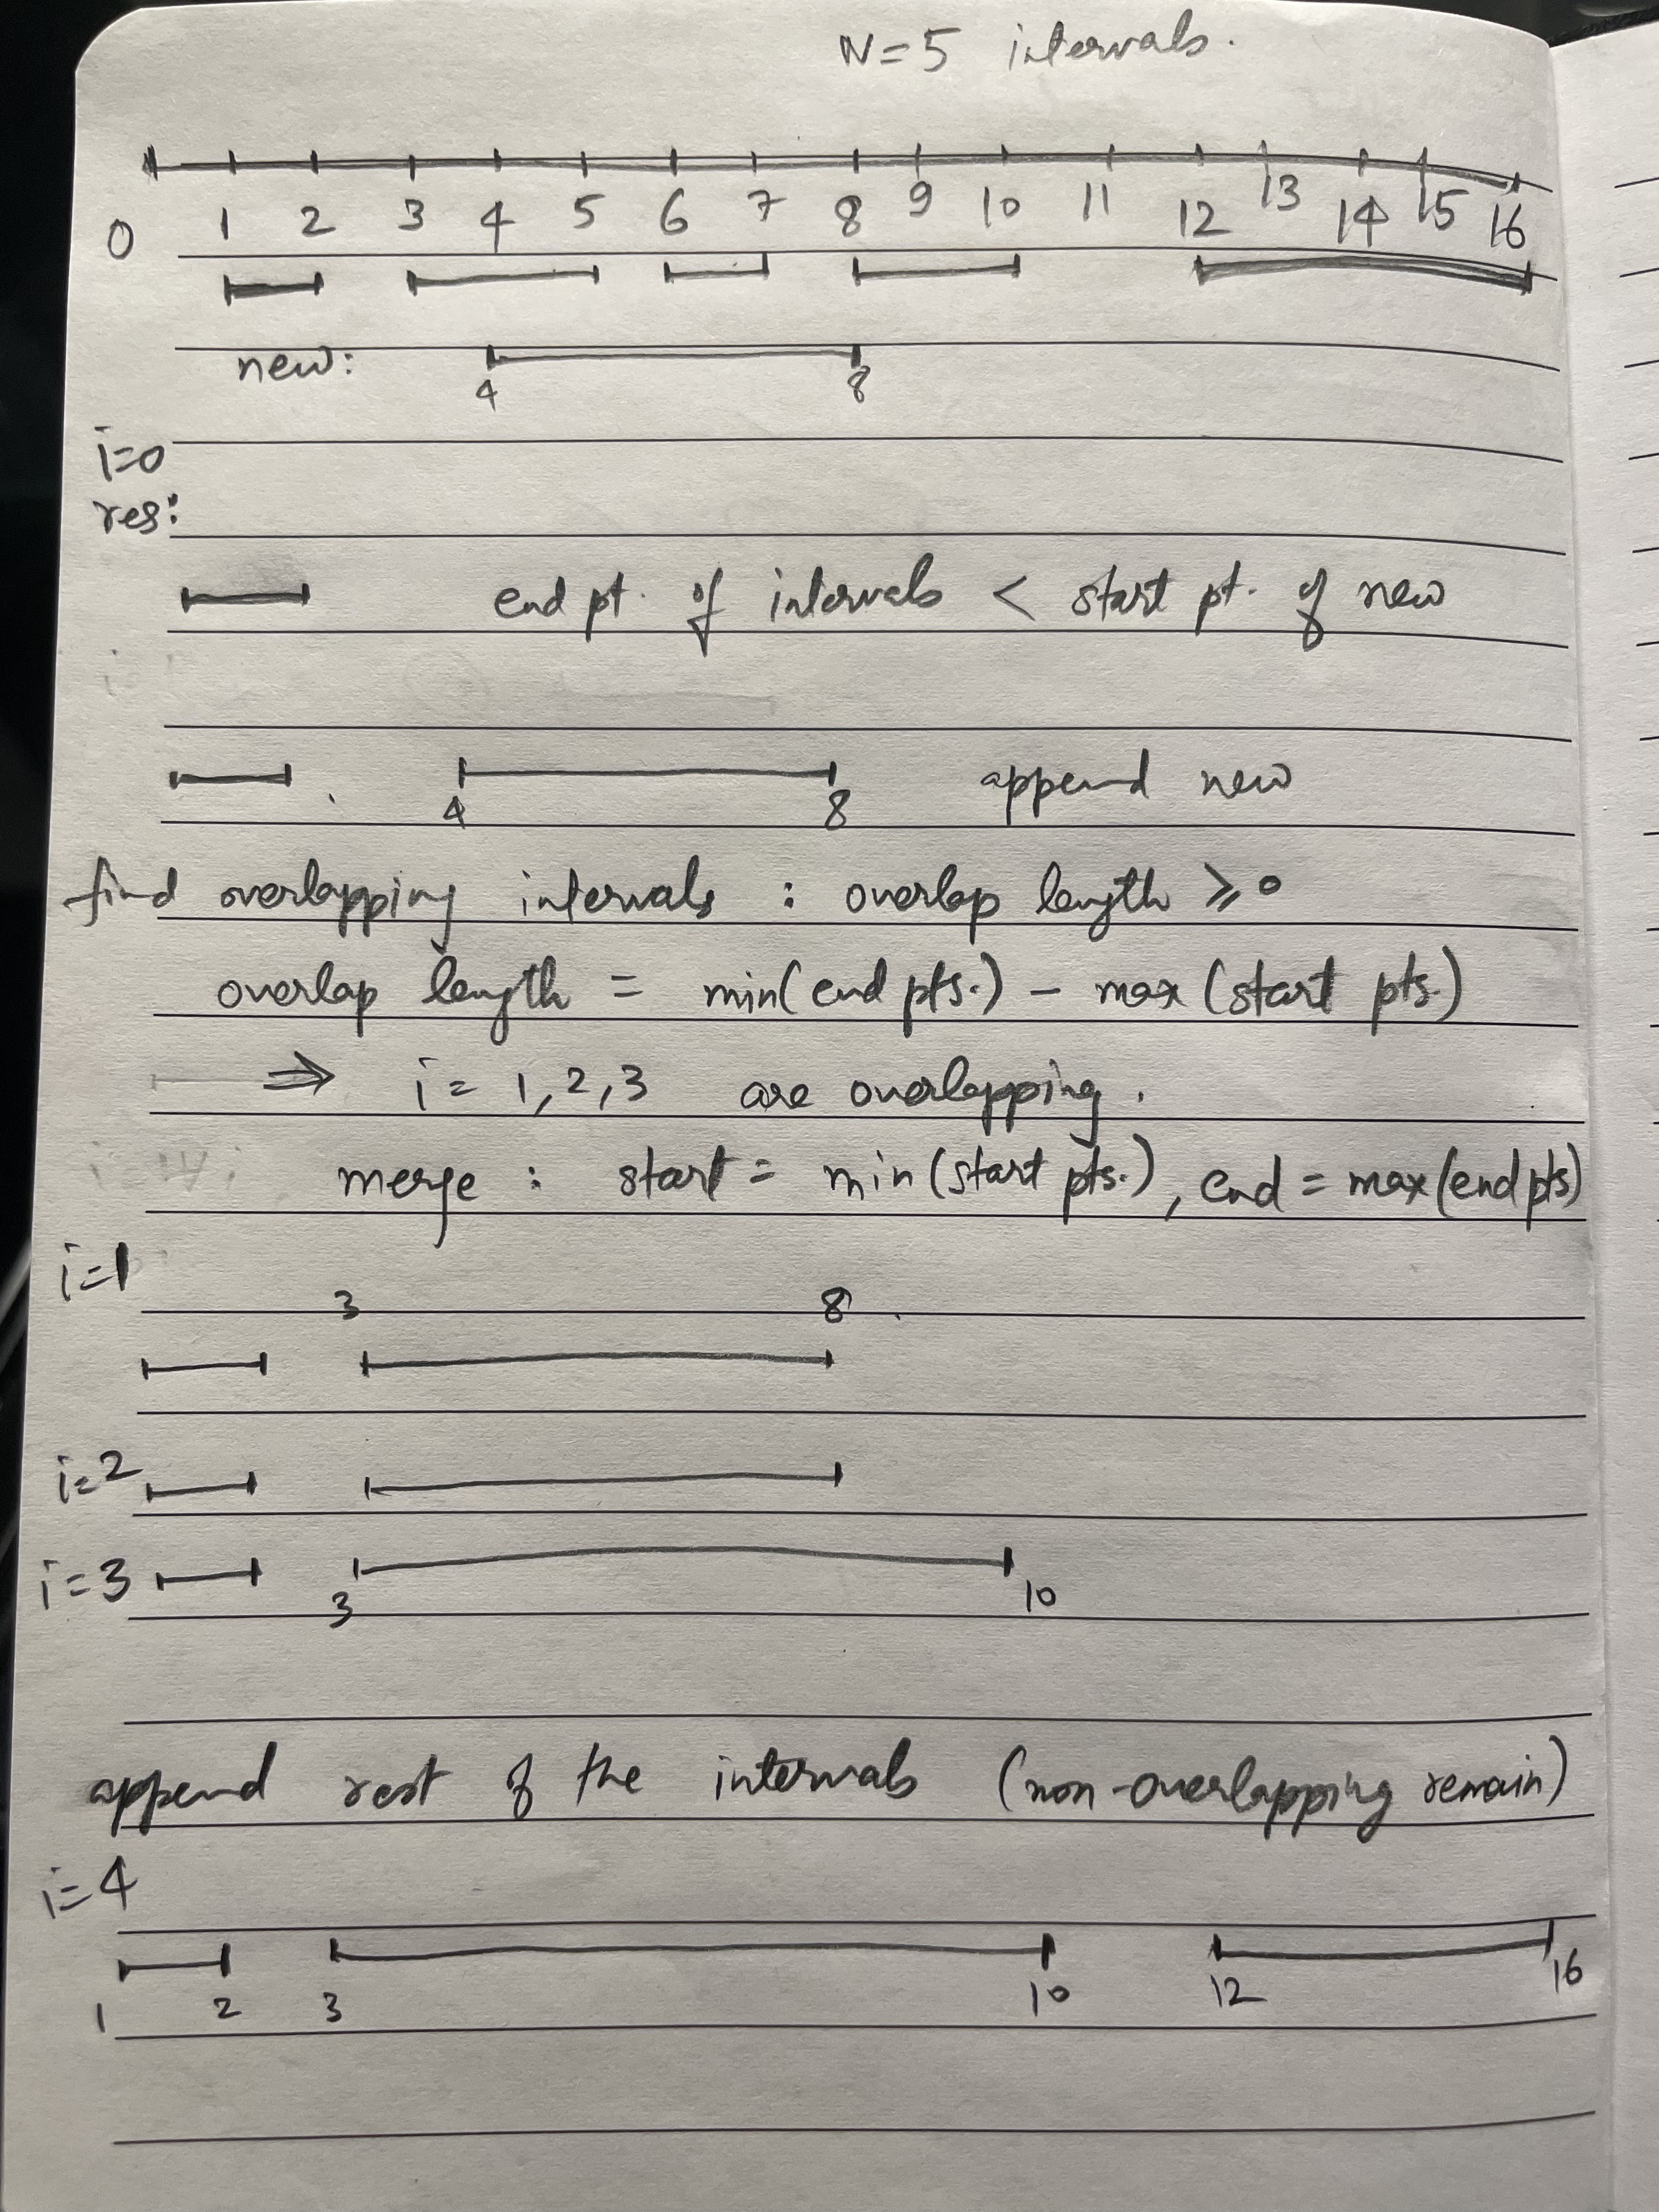 N=5 intervals.
0 1 2 3 4 5 6 7 8 9 10 11 12 13 14 15 16
new:
4 8
i=0
res:
end pt. of intervals < start pt. of new
4 8 append new
find overlapping intervals : overlap length ≥ 0
overlap length = min(end pts.) - max(start pts.)
⇒ i = 1,2,3 are overlapping.
merge : start = min(start pts.), end = max(end pts)
i=1
3 8
i=2
i=3
3 10
append rest of the intervals (non-overlapping remain)
i=4
1 2 3 10 12 16